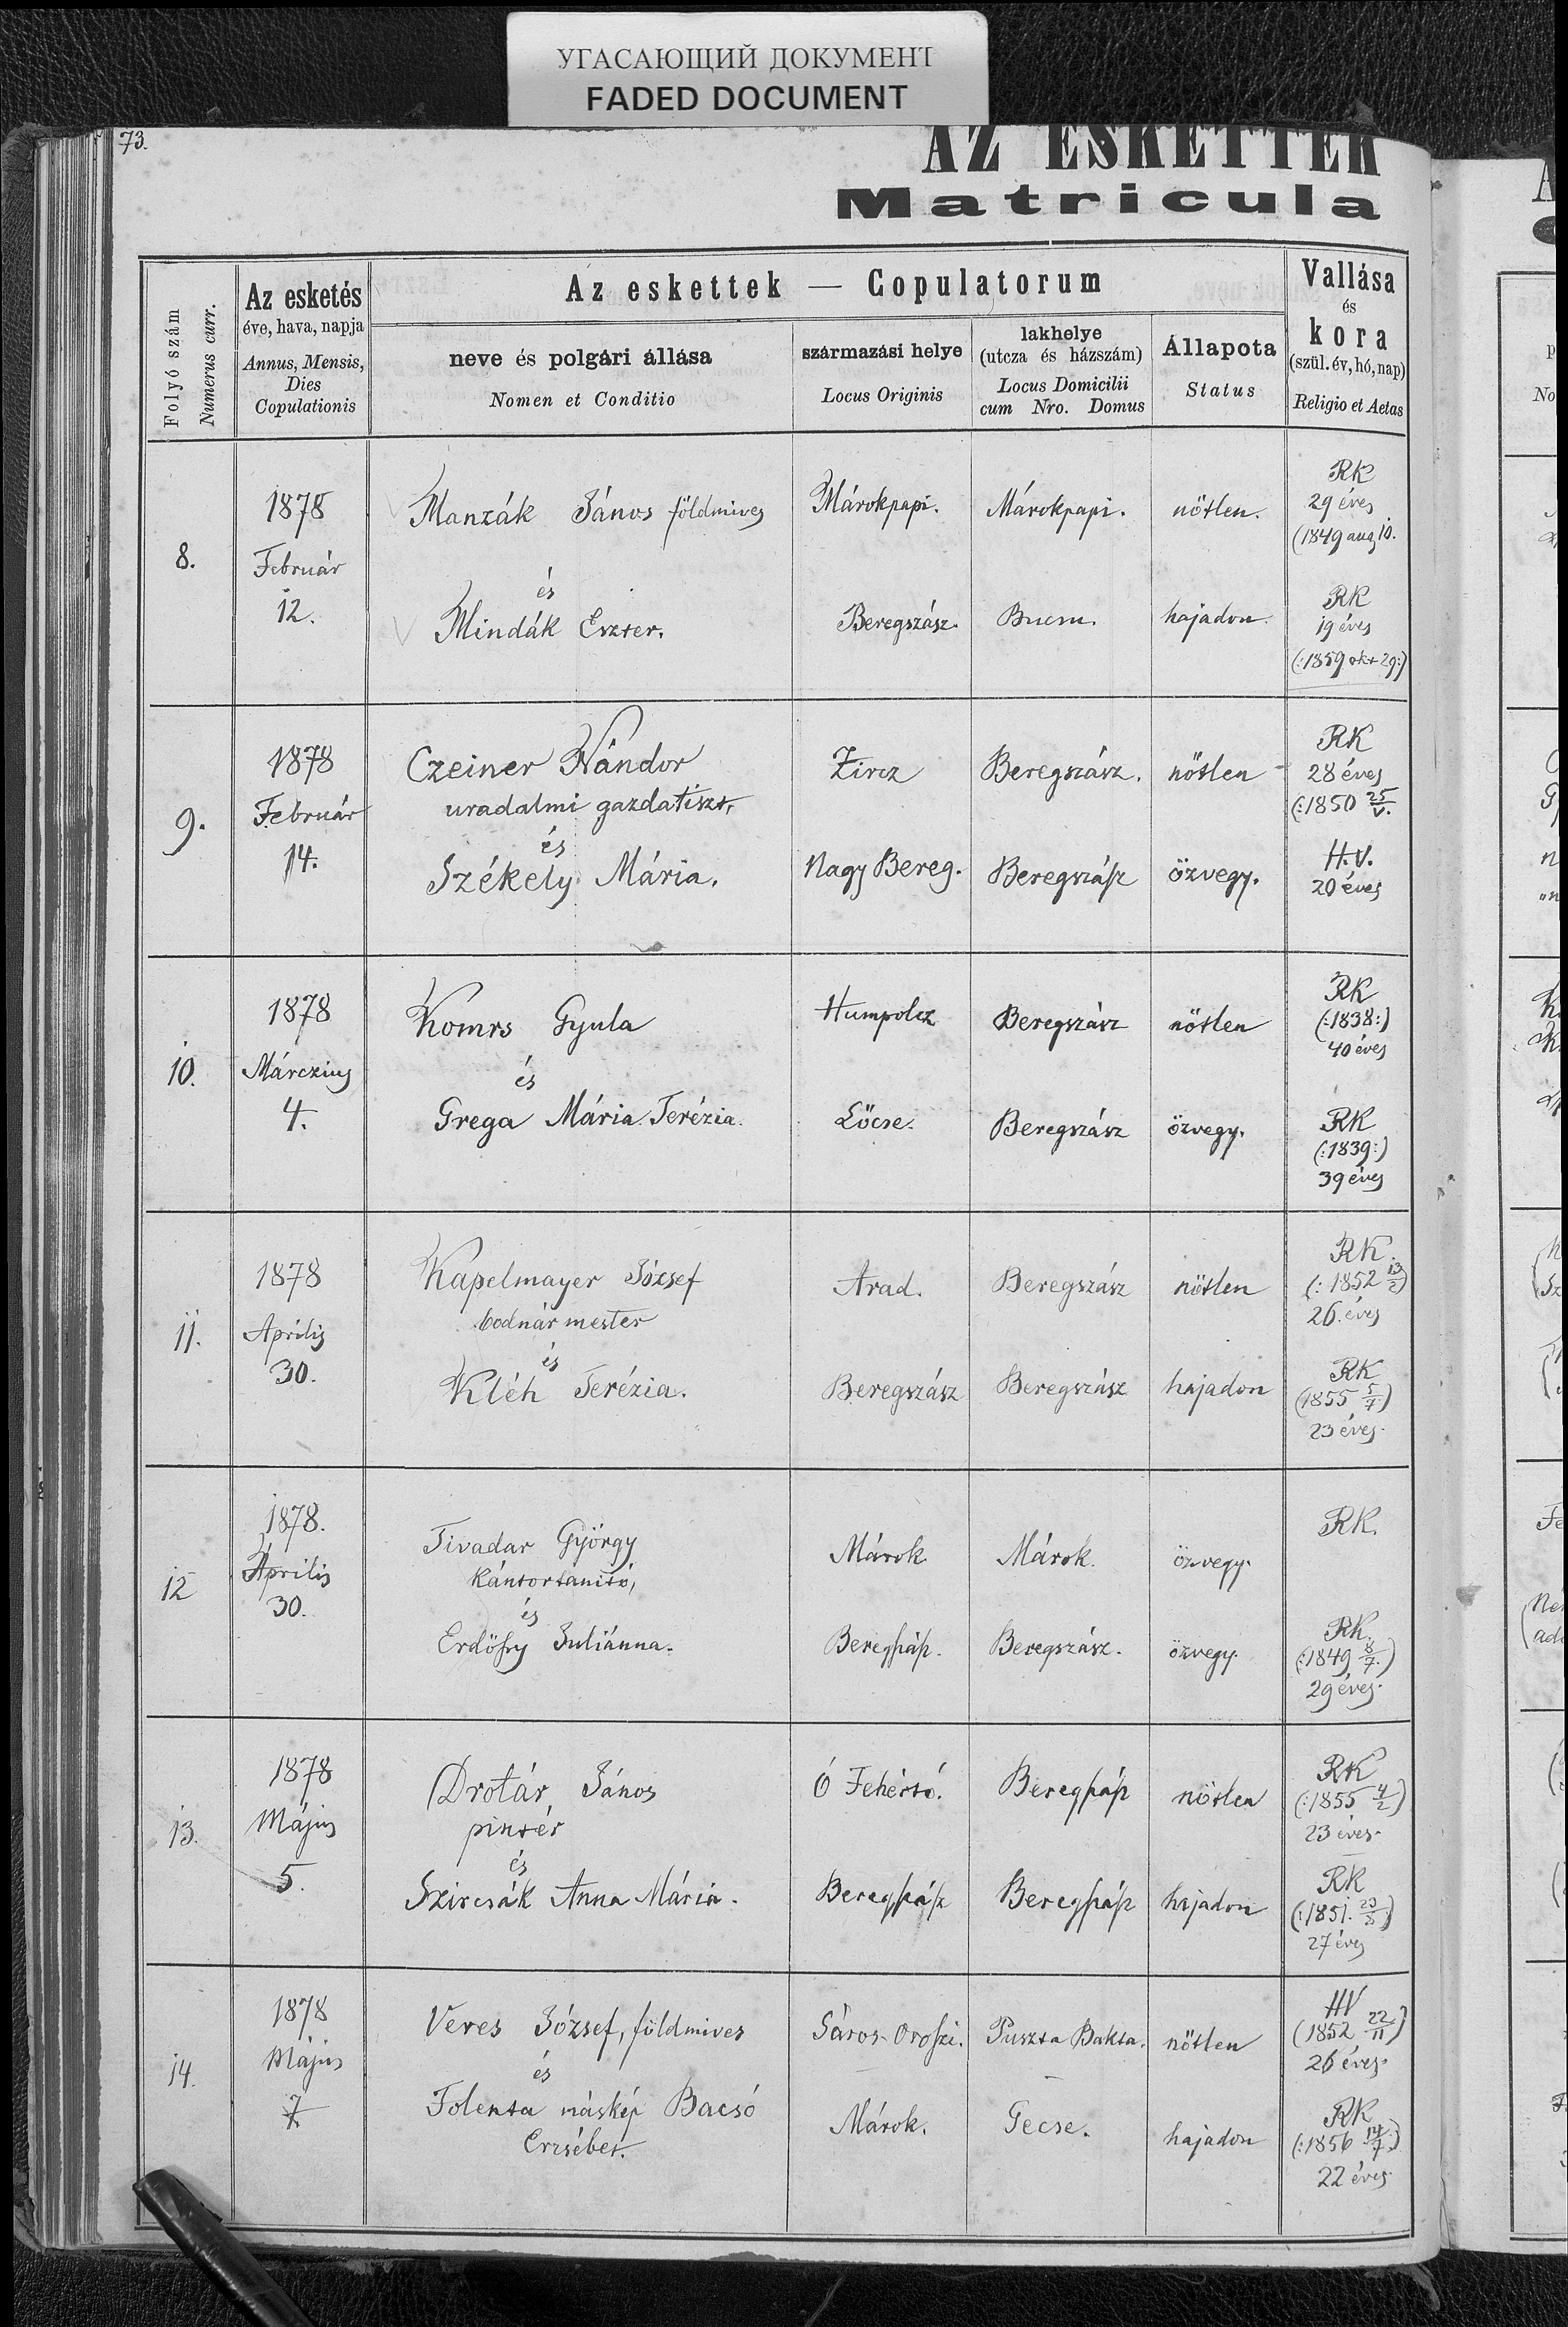 УГАСАЮЩИЙ ДОКУМЕНТ
FADED DOCUMENT
73.
AZ ESKETTEK
Matricula
Folyó szám
Numerus curr.
Az esketés
éve, hava, napja
Annus, Mensis,
Dies
Copulationis
Az eskettek — Copulatorum
neve és polgári állása
Nomen et Conditio
származási helye
Locus Originis
lakhelye
(utcza és házszám)
Locus Domicilii
cum Nro. Domus
Állapota
Status
Vallása
és
kora
(szül. év, hó, nap)
Religio et Aetas
8.
1878
Február
12.
Manzák János földmives
Márokpapi.
Márokpapi.
nötlen.
RK
29 éves
(1849 aug 10.
és
Mindák Eszter.
Beregszász.
hajadon.
RK
19 éves
(:1859 okt 29:)
9.
1878
Február
14.
Czeiner Nándor
uradalmi gazdatiszt,
Zircz
Beregszász.
nötlen
RK
28 éves
(:1850 25/V.
és
Székely Mária.
Nagy Bereg.
Beregszász
özvegy.
H.V.
20 éves
10.
1878
Márczius
4.
Komrs Gyula
Humpolcz
Beregszász
nötlen
RK
(:1838:)
40 éves
és
Grega Mária Terézia.
Lőcse.
Beregszász
özvegy.
RK
(:1839:)
39 éves
11.
1878
Aprilis
30.
Kapelmayer József
bodnár mester
Arad.
Beregszász
nötlen
RK.
(:1852 13/2)
26. éves
és
Kléh Terézia.
Beregszász
Beregszász
hajadon
RK
(1855 5/7.)
23 éves.
12
1878.
Április
30.
Tivadar György
Kántortanitó,
Márok
Márok.
özvegy.
RK.
és
Erdőssy Juliánna.
Beregszász.
Beregszász.
özvegy.
RK.
(:1849 8/7.)
29 éves.
13.
1878
Május
5.
Drotár János
pintér
Ó Fehértó.
Beregszász
nötlen
RK
(:1855 4/2)
23 éves.
és
Szircsák Anna Mária.
Beregszász
Beregszász
hajadon
RK
(:1851.
27 éves
14.
1878
Május
7
Veres József, földmives
Sáros-Oroszi.
Puszta Bakta.
nötlen
HV
(1852 22/11)
26 éves.
és
Folenta máskép Bacsó
Erzsébet.
Márok.
Gecse.
hajadon
RK
(:1856 14/7.)
22 éves